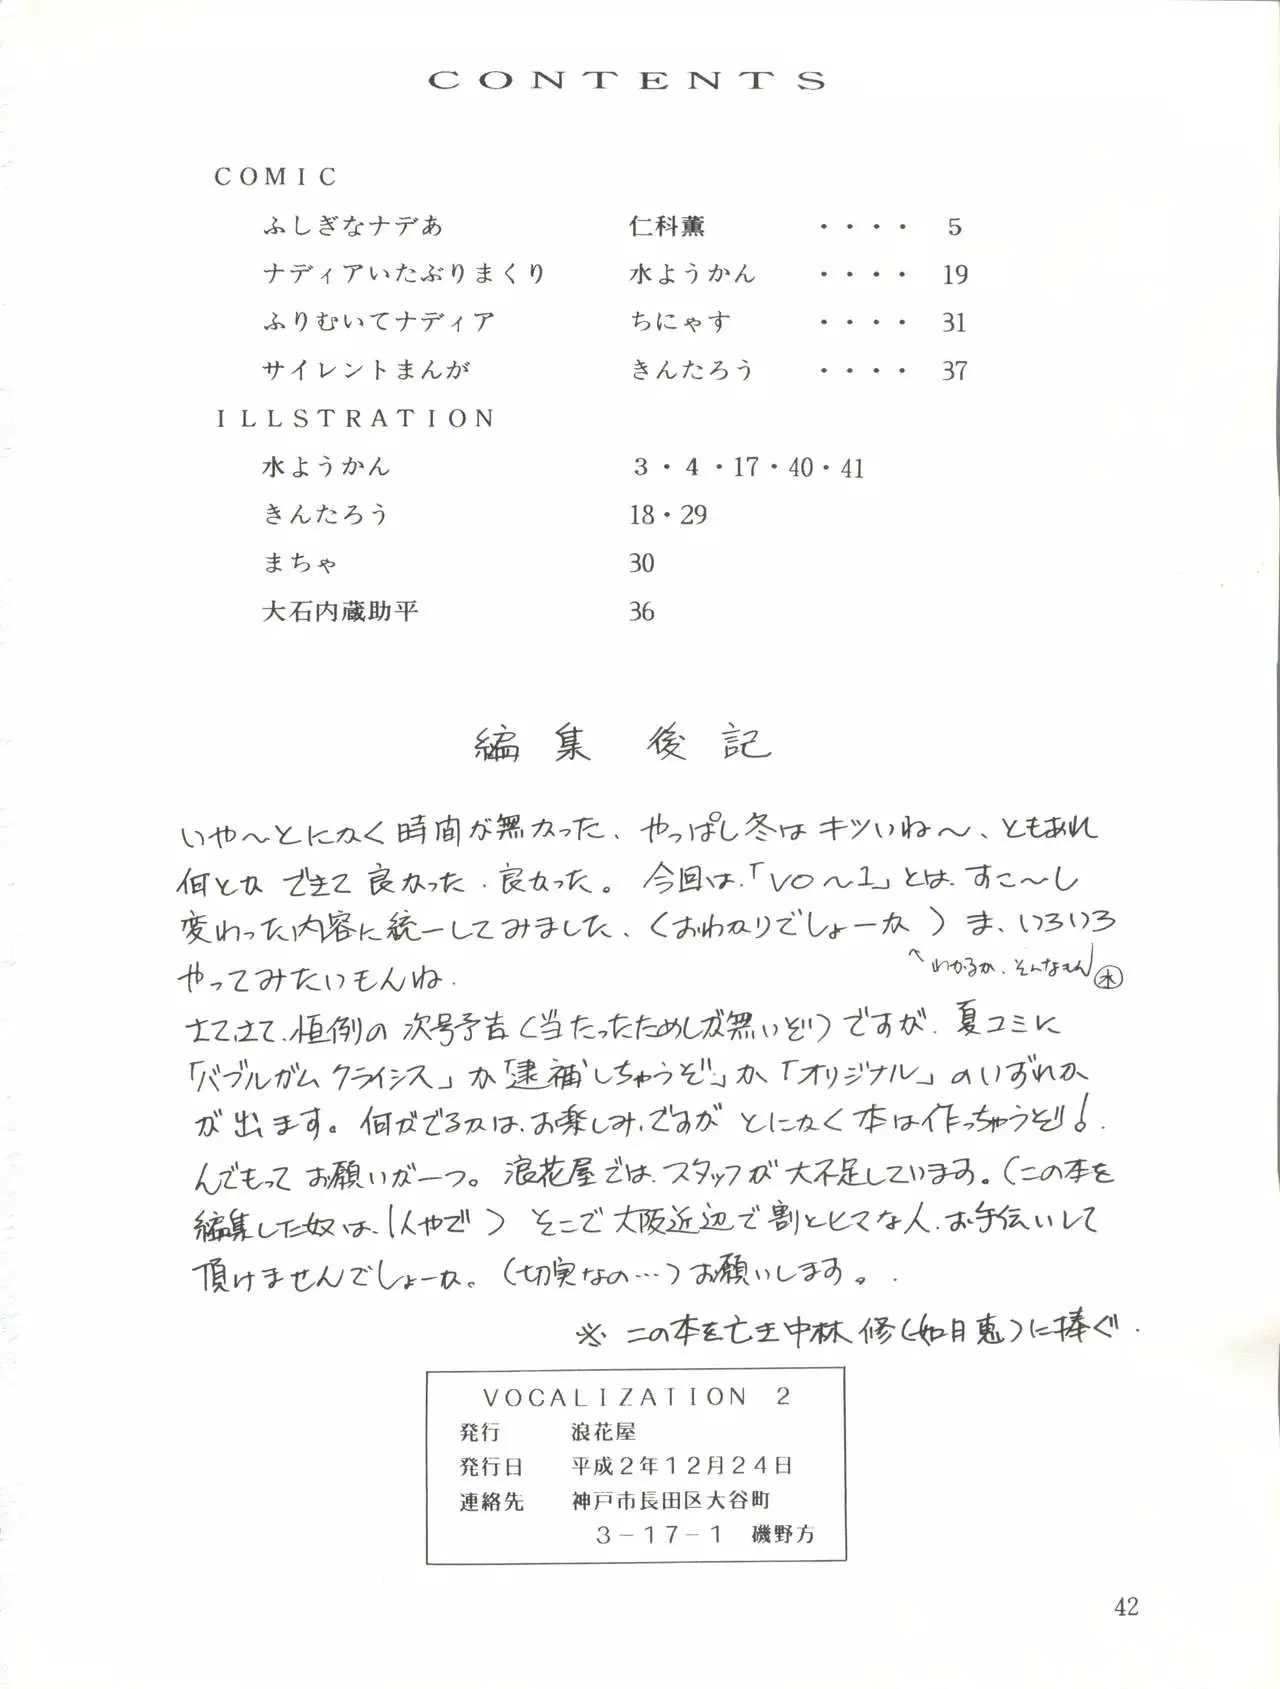 CONTENTS
COMIC
ふしぎなナデあ 仁科薫 ・・・・ 5
ナディアいたぶりまくり 水ようかん ・・・・ 19
ふりむいてナディア ちにゃす ・・・・ 31
サイレントまんが きんたろう ・・・・ 37
ILLSTRATION
水ようかん 3・4・17・40・41
きんたろう 18・29
まちゃ 30
大石内蔵助平 36
編集後記
いや〜とにかく時間が無かった、やっぱし冬はキツいね〜、ともあれ
何とか できて 良かった、良かった。 今回は、「VO〜1」とは、すこ〜し
変わった内容に統一してみました、(おわかりでしょーか) ま、いろいろ
↑わかるか、そんなもん 水
やってみたいもんね、
さてさて、恒例の次号予告(当たったためしが無いぞ)ですが、夏コミに
「バブルガムクライシス」か「逮捕しちゃうぞ」か「オリジナル」のいずれか
が出ます。何がでるかは、お楽しみ、ですが とにかく本は作っちゃうぞ!
んでもって お願いが一つ。浪花屋では、スタッフが大不足しています。(この本を
編集した奴は、1人やで) そこで大阪近辺で割とヒマな人、お手伝いして
頂けませんでしょーか。(切実なの…)お願いします。
※ この本を亡き中林 修(如月恵)に捧ぐ、
VOCALIZATION 2
発行 浪花屋
発行日 平成2年12月24日
連絡先 神戸市長田区大谷町
3-17-1 磯野方
42